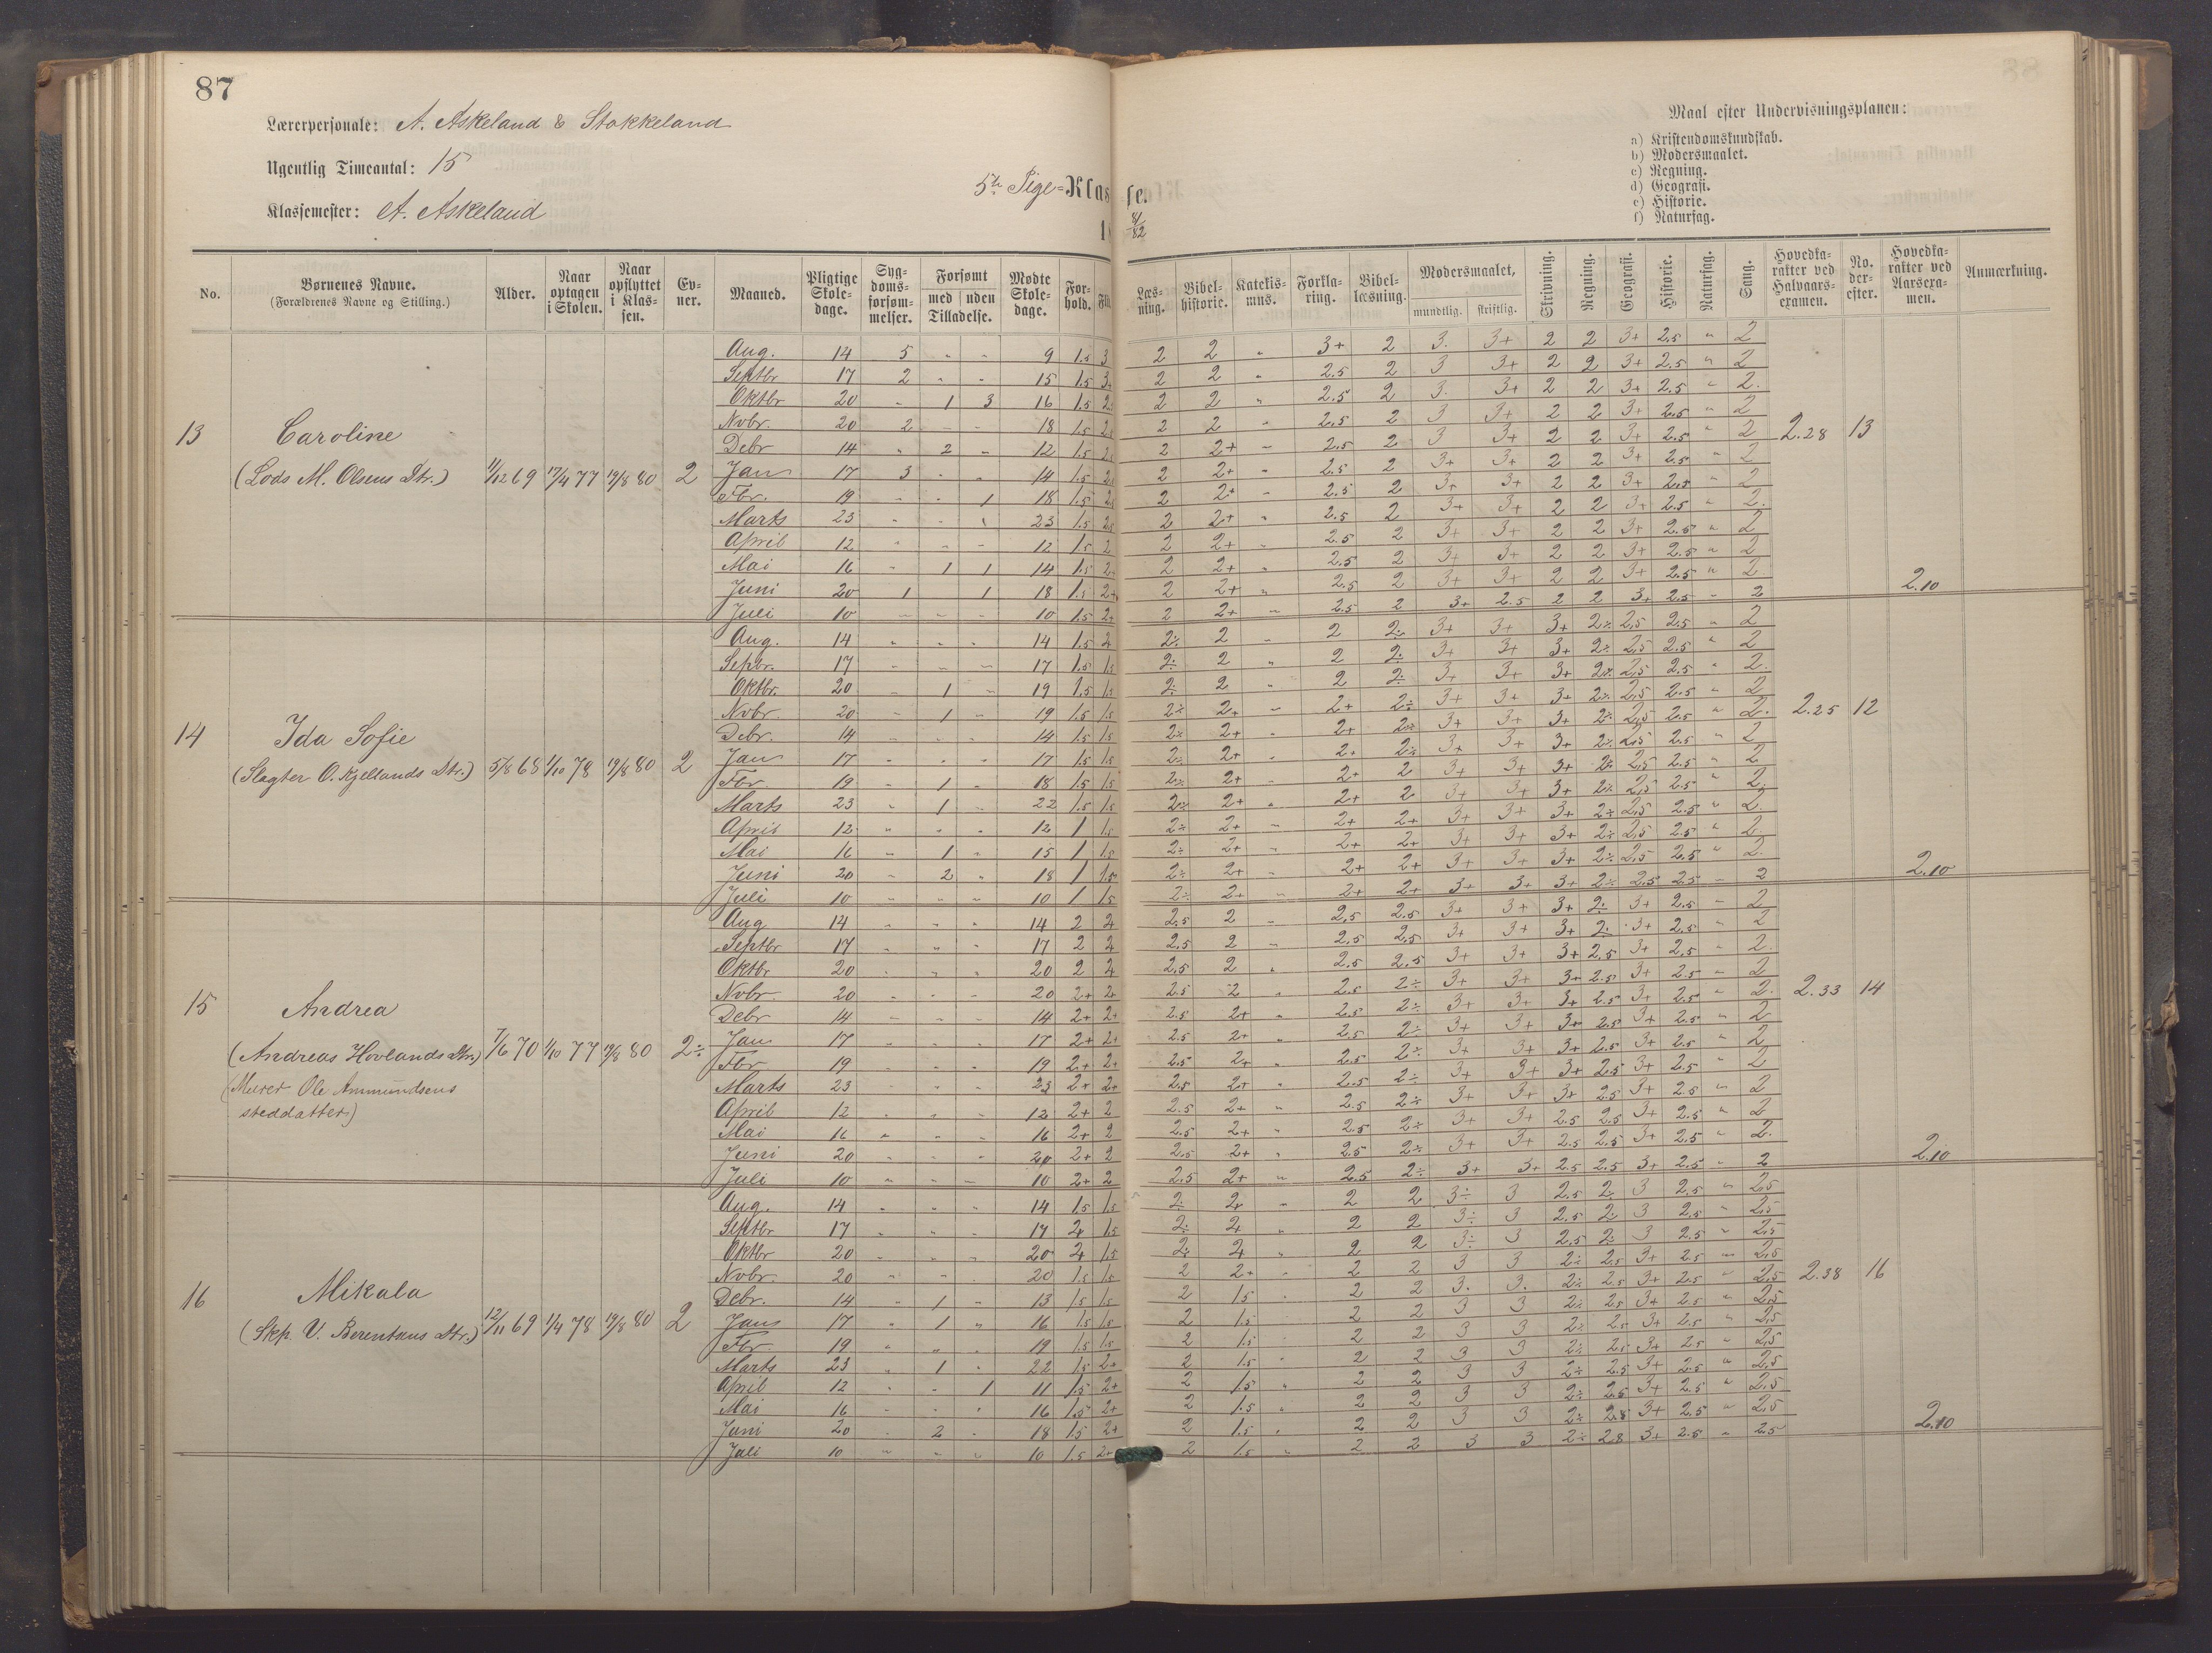 87
Lærerpersonale: A. Askeland & Stokkeland
Ugentlig Timeantal: 15
Klassemester: A. Askeland
5te Pige=Klasse.
18 81/82
Maal efter Undervisningsplanen:
a) Kristendomskundskab.
b) Modersmaalet.
c) Regning.
d) Geografi.
e) Historie.
f) Naturfag.
No. Børnenes Navne. (Forældrenes Navne og Stilling.) Alder. Naar optagen i Skolen. Naar opflyttet i Klassen. Evner. Maaned. Pligtige Skoledage. Sygdomsforsømmelser. Forsømt med uden Tilladelse. Mødte Skoledage. Forhold. Læsning. Bibelhistorie. Katekismus. Forklaring. Bibellæsning. Modersmaalet, mundtlig. skriftlig. Skrivning. Regning. Geografi. Historie. Naturfag. Sang. Hovedkarakter ved Halvaarsexamen. No. derefter. Hovedkarakter ved Aarsexamen. Anmærkning.
13 Caroline (Lods M. Olsens Dtr.) 11/12 69 17/4 77 19/8 80 2 2.28 13 2.10
Aug. 14 5 " " 9 1.5 3 2 2 " 3+ 2 3. 3+ 2 2 3+ 2.5 " 2
Septbr 17 2 " " 15 1.5 3+ 2 2 " 2.5 2 3 3+ 2 2 3+ 2.5 " 2
Oktbr 20 " 1 3 16 1.5 2 2 " 2.5 2 3. 3+ 2 2 3+ 2.5 " 2.
Nobr. 20 2 18 1.5 2 2 " 2.5 2 3 3+ 2 2 3+ 2.5 " 2
Debr 14 " 2 " 12 1.5 2 2+ " 2.5 2 3 3+ 2 2 3+ 2.5 " 2
Jan 17 3 " " 14 1.5 2 2+ " 2.5 2 3+ 3+ 2 2 3+ 2.5 " 2
Fbr. 19 " " 1 18 1.5 2 2+ " 2.5 2 3+ 3+ 2 2 3+ 2.5 " 2
Marts 23 " " " 23 1.5 2 2+ " 2.5 2 3+ 3+ 2 2 3+ 2.5 " 2.
April 12 " " " 12 1.5 2 2 2+ " 2.5 2 3+ 3+ 2 2 3+ 2.5 " 2
Mai 16 " 1 1 14 1.5 2 2+ " 2.5 2 3+ 3+ 2 2 3+ 2.5 " 2
Juni 20 1 1 18 1.5 2+ 2 2+ " 2.5 2 3+ 3+ 2 2 3+ 2.5 " 2
Juli 10 " " " 10 1.5 2+ 2 2+ " 2.5 2 3+ 2.5 2 2 3+ 2.5 " 2
14 Ida Sofie (Slagter O. Kjellands Dtr.) 5/8 68 1/10 78 19/8 80 2 2.25 12 2.10
Aug. 14 " " " 14 1.5 2 2÷ 2 " 2 2÷ 3+ 3+ 3+ 2÷ 2.5 2.5 " 2
Septbr. 17 " " " 17 1.5 1.5 2÷ 2 " 2 2÷ 3+ 3+ 3+ 2÷ 2.5 2.5 " 2
Oktbr. 20 " 1 " 19 1.5 1.5 2÷ 2 " 2 2÷ 3+ 3+ 3+ 2÷ 2.5 2.5 " 2.
Nobr. 20 " 1 " 19 1.5 1.5 2÷ 2+ " 2+ 2÷ 3+ 3+ 3+ 2÷ 2.5 2.5 " 2
Debr. 14 " " " 14 1.5 1.5 2÷ 2+ " 2+ 2÷ 3+ 3+ 3+ 2÷ 2.5 2.5 " 2.
Jan 17 " " " 17 1.5 1.5 2÷ 2+ " 2+ 2÷ 3+ 3+ 3+ 2÷ 2.5 2.5 " 2
Fbr 19 " 1 " 18 1.5 1.5 2÷ 2+ " 2+ 2 3+ 3+ 3+ 2÷ 2.5 2.5 " 2
Marts 23 " 1 " 22 1.5 1.5 2÷ 2+ " 2+ 2 3+ 3+ 3+ 2÷ 2.5 2.5 " 2.
April 12 " " " 12 1 1.5 2÷ 2+ " 2+ 2+ 3+ 3+ 3+ 2÷ 2.5 2.5 " 2.
Mai 16 " 1 " 15 1 1.5 2÷ 2+ " 2+ 2+ 3+ 3+ 3+ 2÷ 2.5 2.5 " 2.
Juni 20 " 2 " 18 1 1.5 2÷ 2+ " 2+ 2+ 3+ 3+ 3+ 2÷ 2.5 2.5 " 2.
Juli 10 " " " 10 1 1.5 2÷ 2+ " 2+ 2+ 3+ 3+ 3+ 2÷ 2.5 2.5 " 2
15 Andrea (Andreas Hovlands Dtr.) (Murer Ole Ammundsens steddatter) 7/6 70 1/10 77 19/8 80 2÷ 2.33 14 2.10
Aug 14 " " " 14 2 2 2.5 2 " 2.5 2.5 3+ 3+ 3+ 2÷ 3+ 2.5 " 2
Septbr 17 " " " 17 2 2 2.5 2 " 2.5 2.5 3+ 3+ 3+ 2÷ 3+ 2.5 " 2
Oktbr 20 " " " 20 2 2 2.5 2 " 2.5 2.5 3+ 3+ 3+ 2.5 3+ 2.5 " 2.
Nobr. 20 " " " 20 2+ 2+ 2.5 2 " 2.5 2÷ 3+ 3+ 3+ 2.5 3+ 2.5 " 2
Debr 14 " " " 14 2+ 2+ 2.5 2+ " 2.5 2÷ 3+ 3+ 3+ 2.5 3+ 2.5 " 2.
Jan 17 " " " 17 2+ 2+ 2.5 2+ " 2.5 2÷ 3+ 3+ 3+ 2.5 3+ 2.5 " 2
Fbr 19 " " " 19 2+ 2+ 2.5 2+ " 2.5 2÷ 3+ 3+ 3+ 2.5 3+ 2.5 " 2
Marts 23 " " " 23 2+ 2+ 2.5 2+ " 2.5 2÷ 3+ 3+ 3+ 2.5 3+ 2.5 " 2
April 12 " " " 12 2+ 2 2.5 2+ " 2.5 2÷ 3+ 3+ 3+ 2.5 3+ 2.5 " 2
Mai 16 " " " 16 2+ 2 2.5 2+ " 2.5 2÷ 3+ 3+ 2.5 2.5 3+ 2.5 " 2
Juni 20 " " " 20 2+ 2 2.5 2+ " 2.5 2÷ 3+ 3+ 2.5 2.5 3+ 2.5 " 2.
Juli 10 " " " 10 2+ 2 2.5 2+ " 2.5 2÷ 3+ 3+ 2.5 2.5 3+ 2.5 " 2
16 Mikala (Skp. V. Berentsens Dtr.) 12/11 69 1/4 78 19/8 80 2 2.38 16 2.10
Aug. 14 " " " 14 1.5 1.5 2÷ 2+ " 2 2 3÷ 3 2.5 2÷ 3 2.5 " 2.5
Septbr 17 " " " 17 2 1.5 2÷ 2 " 2 2 3÷ 3 2.5 2÷ 3 2.5 " 2.5
Oktbr 20 " " " 20 2 1.5 2÷ 2 " 2 2 3÷ 3 2.5 2÷ 3 2.5 " 2.5
Nobr. 20 " " " 20 1.5 1.5 2 2+ " 2 2 3 3 2÷ 2.5 3+ 2.5 " 2.5
Debr. 14 " 1 " 13 1.5 1.5 2 1.5 " 2 2 3. 3. 2÷ 2.5 3+ 2.5 " 2.5
Jan 17 " 1 " 16 1.5 1.5 2 1.5 " 2 2 3 3 2÷ 2.5 3+ 2.5 " 2.5
Fbr 19 " " " 19 1.5 1.5 2 1.5 " 2 2 3 3 2÷ 2.5 3+ 2.5 " 2.5
Marts 23 " 1 " 22 1.5 2+ 2 1.5 " 2 2 3 3 2÷ 2.5 3+ 2.5 " 2.5
April 12 " " 1 11 1.5 2+ 2 1.5 " 2 2 3 3 2÷ 2.5 3+ 2.5 " 2.5
Mai 16 " " " 16 1.5 2+ 2 1.5 " 2 2 3 3 2÷ 2.5 3+ 2.5 " 2.5
Juni 20 " 2 " 18 1.5 2+ 2 1.5 " 2 2 3 3 2÷ 2.8 3+ 2.5 " 2.5
Juli 10 " " " 10 1.5 2+ 2 1.5 " 2 2 3 3 2÷ 2.8 3+ 2.5 " 2.5